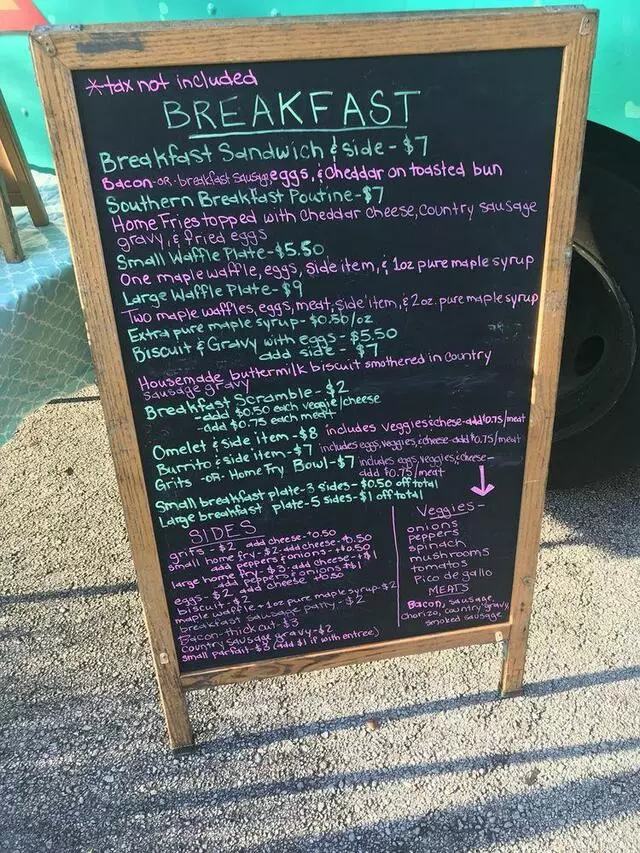 *tax not included
BREAKFAST
Breakfast Sandwich & side - $7
Bacon -OR- breakfast sausage, eggs, & Cheddar on toasted bun
Southern Breakfast Poutine - $7
Home Fries topped with Cheddar Cheese, Country sausage
gravy, & fried eggs
Small Waffle Plate - $5.50
One maple waffle, eggs, side item, & 1oz pure maple syrup
Large Waffle Plate - $9
Two maple waffles, eggs, meat, side item, & 2oz. pure maple syrup
Extra pure maple syrup - $0.50/oz
Biscuit & Gravy with eggs - $5.50
add side - $7
Housemade buttermilk biscuit smothered in Country
sausage gravy
Breakfast Scramble - $2
-add $0.50 each veggie/cheese
-add $0.75 each meat
Omelet & side item - $8 includes veggies & chese - add $0.75/meat
Burrito & side item - $7 includes eggs, veggies, & cheese - add $0.75/meat
Grits -OR- Home Fry Bowl - $7 includes eggs, veggies, & cheese -
add $0.75/meat
Small breakfast plate - 3 sides - $0.50 off total
Large breakfast plate - 5 sides - $1 off total
SIDES
grits - $2 add cheese - +0.50
small home fry - $2 - add cheese - +0.50
add peppers & onions - +$0.50
large home fry - $3 - add cheese - +$1
add peppers & onions +$1
eggs - $2, add cheese +0.50
biscuit - $2
maple waffle + 1oz pure maple syrup - $2
breakfast sausage patty - $2
Bacon - thick cut - $3
Country sausage gravy - $2
small parfait - (add $1 if with entree)
Veggies -
onions
peppers
spinach
mushrooms
tomatos
Pico de gallo
MEATS
Bacon, sausage,
chorizo, country gravy,
smoked sausage